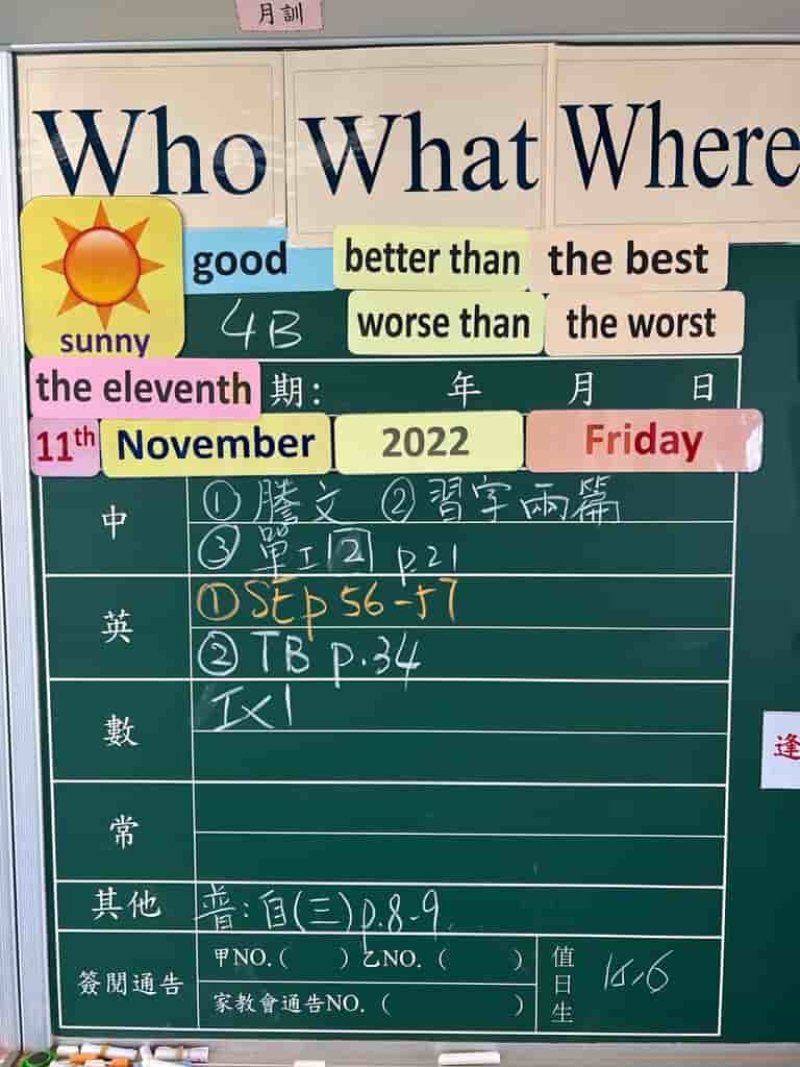 月訓
Who What Where
good better than the best
sunny 4B worse than the worst
the eleventh 期: 年 月 日
11th November 2022 Friday
中 ① 謄文 ② 習字兩篇
③ 單工 2 p.21
英 ① SE p 56-57
② TB p.34
數 工x1
常
其他 普:自(三)p.8-9
簽閱通告 甲NO.( ) 乙NO.( )
家教會通告NO.( )
值日生
逢